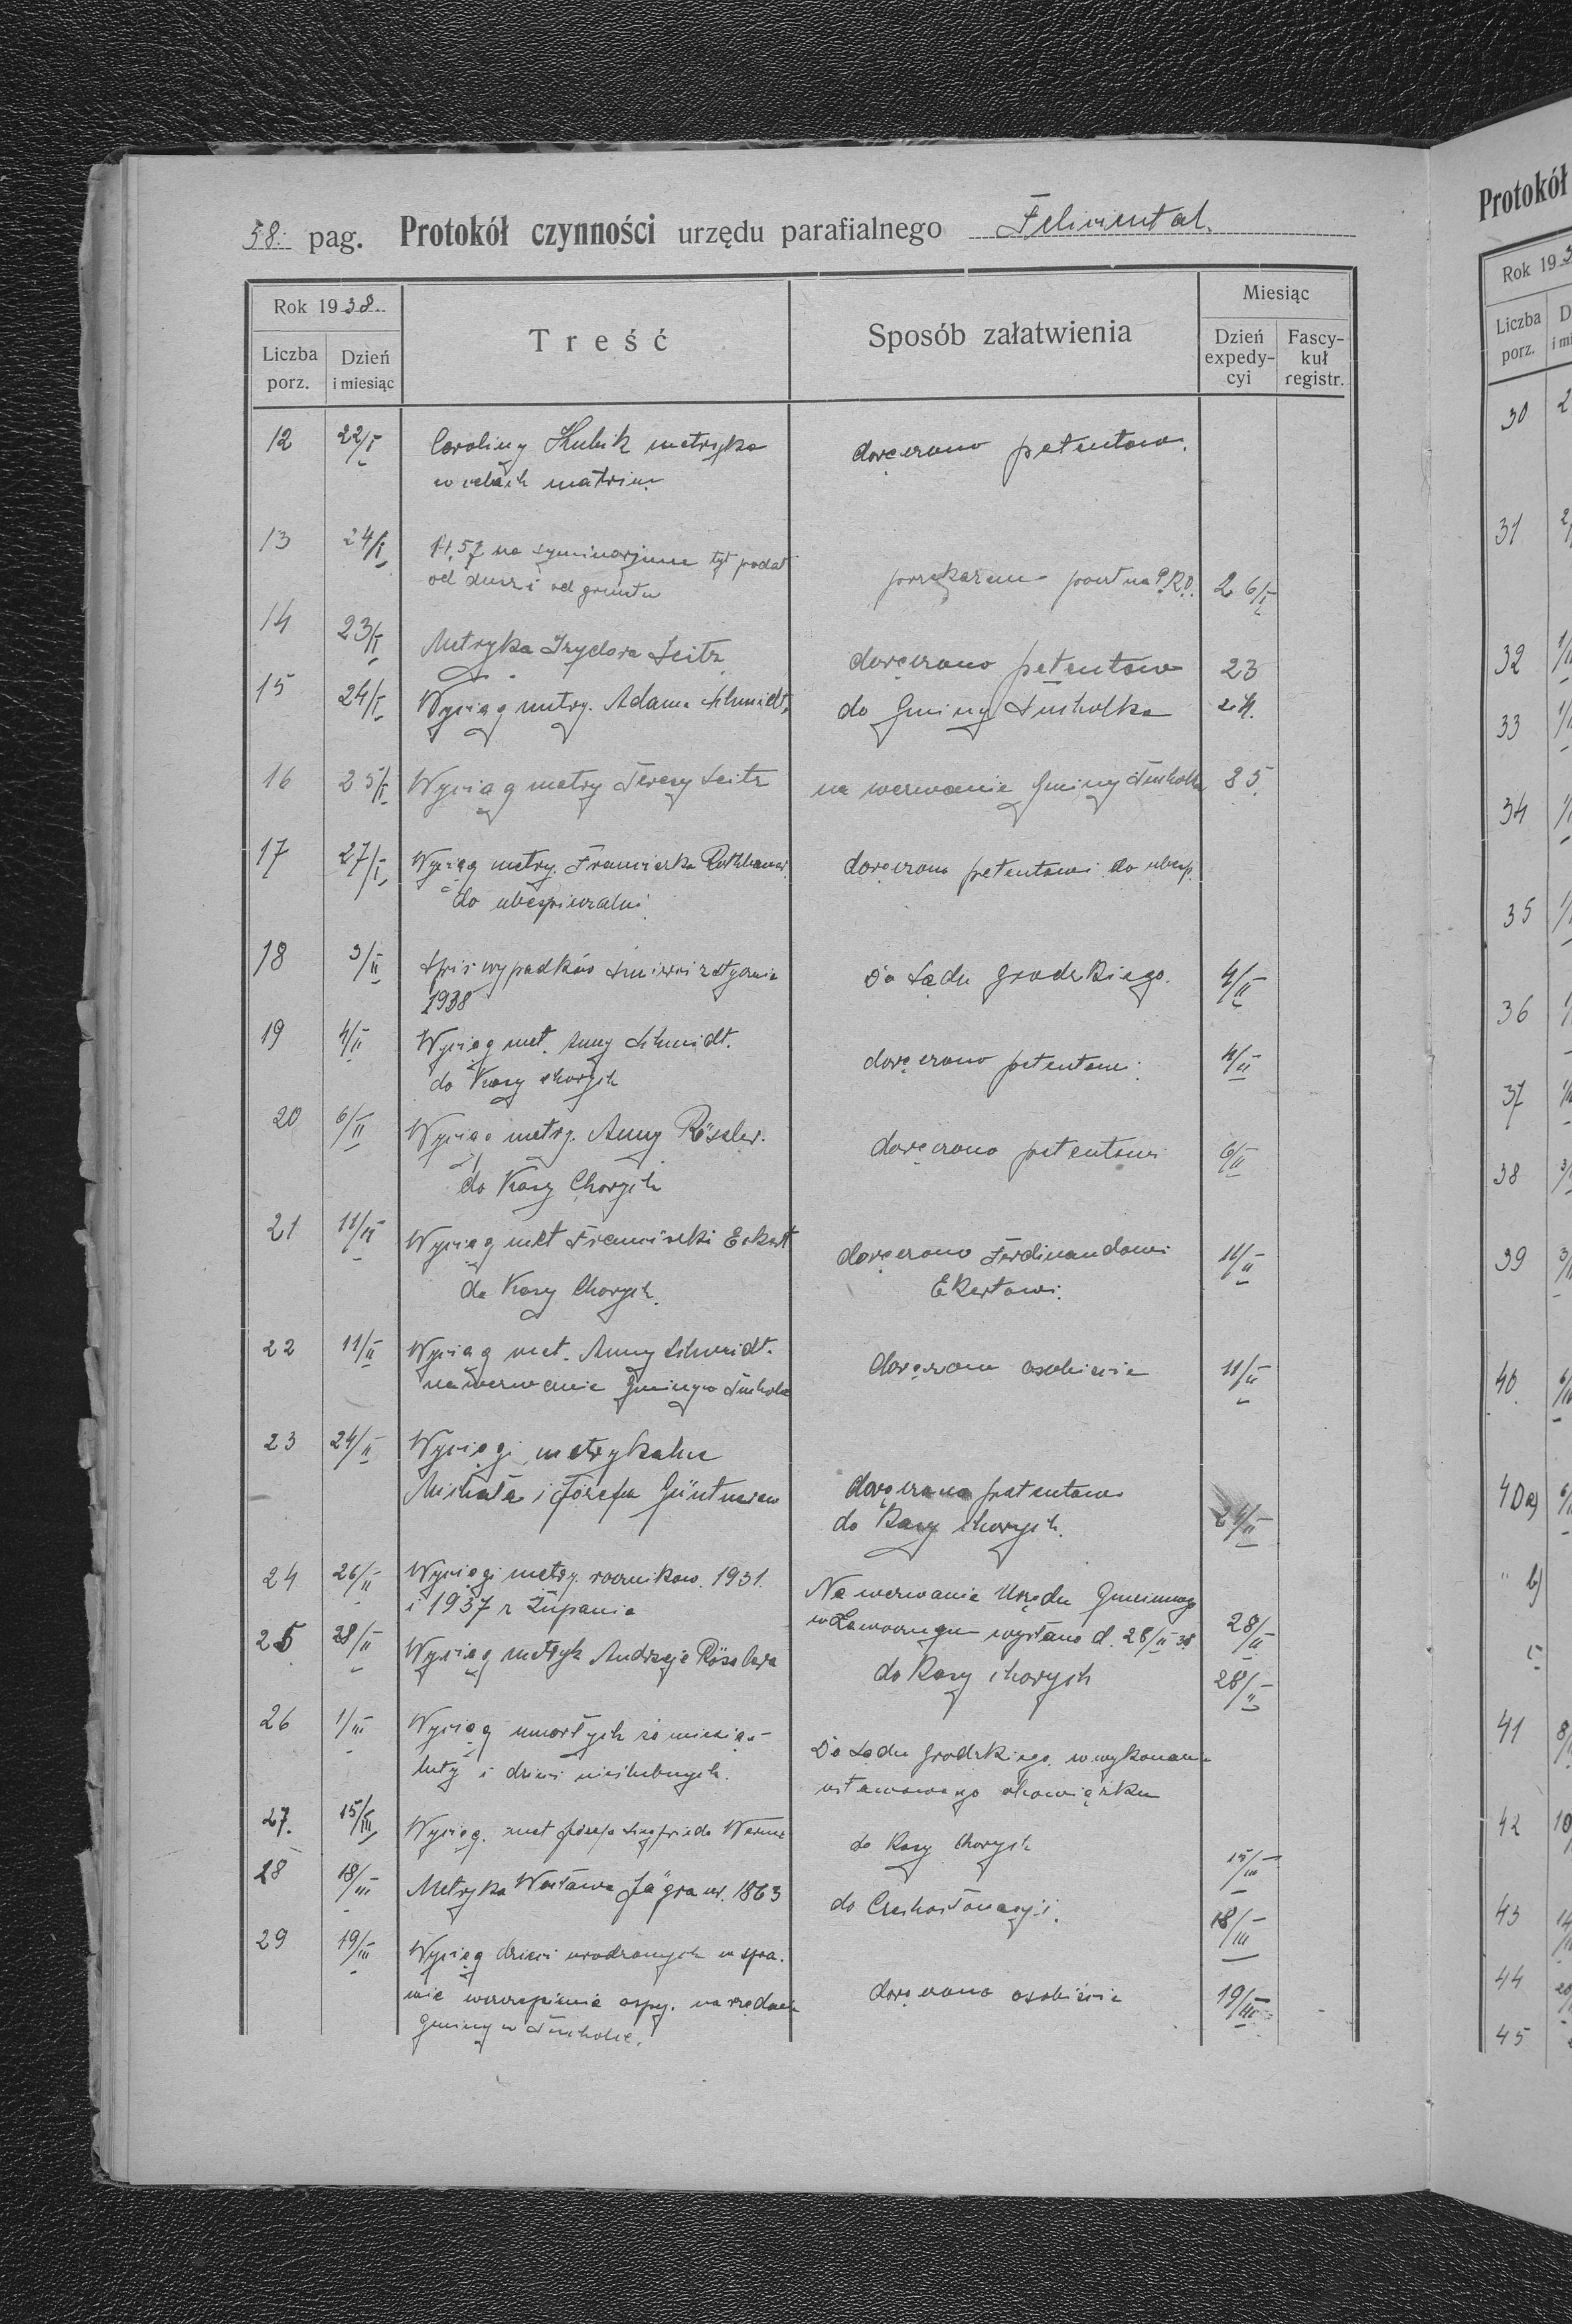 58. pag. Protokół czynności urzędu parafialnego Felicientał.
Rok 1938.
Liczba porz.
Dzień i miesiąc
Treść
Sposób załatwienia
Miesiąc
Dzień expedycyi
Fascykuł registr.
12 22/I Caroliny Kubik metryka doręczono petentowi.
w celach matrim
13 24/I 14,57 na seminarjum tyt podat
od dusz i od gruntu przekazem poczt na P.K.O. 26/I
14 23/I Metryka Izydora Seitz doręczono petentowi 23
15 24/I Wyciąg metry. Adama Schmidt. do Gminy Tucholka 24.
16 25/I Wyciąg metry Teresy Seitz na wezwanie Gminy Tucholka 25.
17 27/I Wyciąg metry. Franciszka doręczono petentowi do ubezp.
do ubezpieczalni
18 3/II Spis wypadków śmierci z stycznia Do Sądu Grodzkiego. 4/II
1938
19 4/II Wyciąg met. Anny Schmidt. doręczono petentowi. 4/II
do Kasy chorych
20 6/II Wyciąg metry. Anny Rössler. doręczono petentowi 6/II
do Kasy Chorych
21 11/II Wyciąg met Franciszki Eckert doręczono Ferdinandowi 11/II
do Kasy Chorych. Ekertowi.
22 11/II Wyciąg met. Anny Schmidt. doręczono osobiście 11/II
na wezwanie Gminy w Tucholce
23 24/II Wyciągi metrykalne
Michała i Józefa Güntnerów doręczono petentowi
do Kasy chorych. 24/II
24 26/II Wyciągi metry. roczników. 1931. Na wezwanie Urzędu Gminnego
i 1937 z Żupania w Ławocznem wysłano d. 28/II 38 28/II
25 28/II Wyciąg metryk Andrzeja Rösslera do Kasy chorych 28/II
26 1/III Wyciąg umarłych za miesiąc Do Sądu Grodzkiego. w wykonaniu
luty i dzieci nieślubnych. ustawowego obowiązku
27. 15/III Wyciąg. met Józefa Siegfrieda do Kasy Chorych 15/III
28 18/III Metryka Wacława Jägra ur. 1863 do Czechosłowacji. 18/III
29 19/III Wyciąg dzieci urodzonych w spra-
wie wszczepienia ospy. na żądanie doręczono osobiście 19/III
gminy w Tucholce.
Protokół
Rok 193
Liczba porz.
30
31
32
33
34
35
36
37
38
39
40.
40a)
" b)
41
42
43
44
45